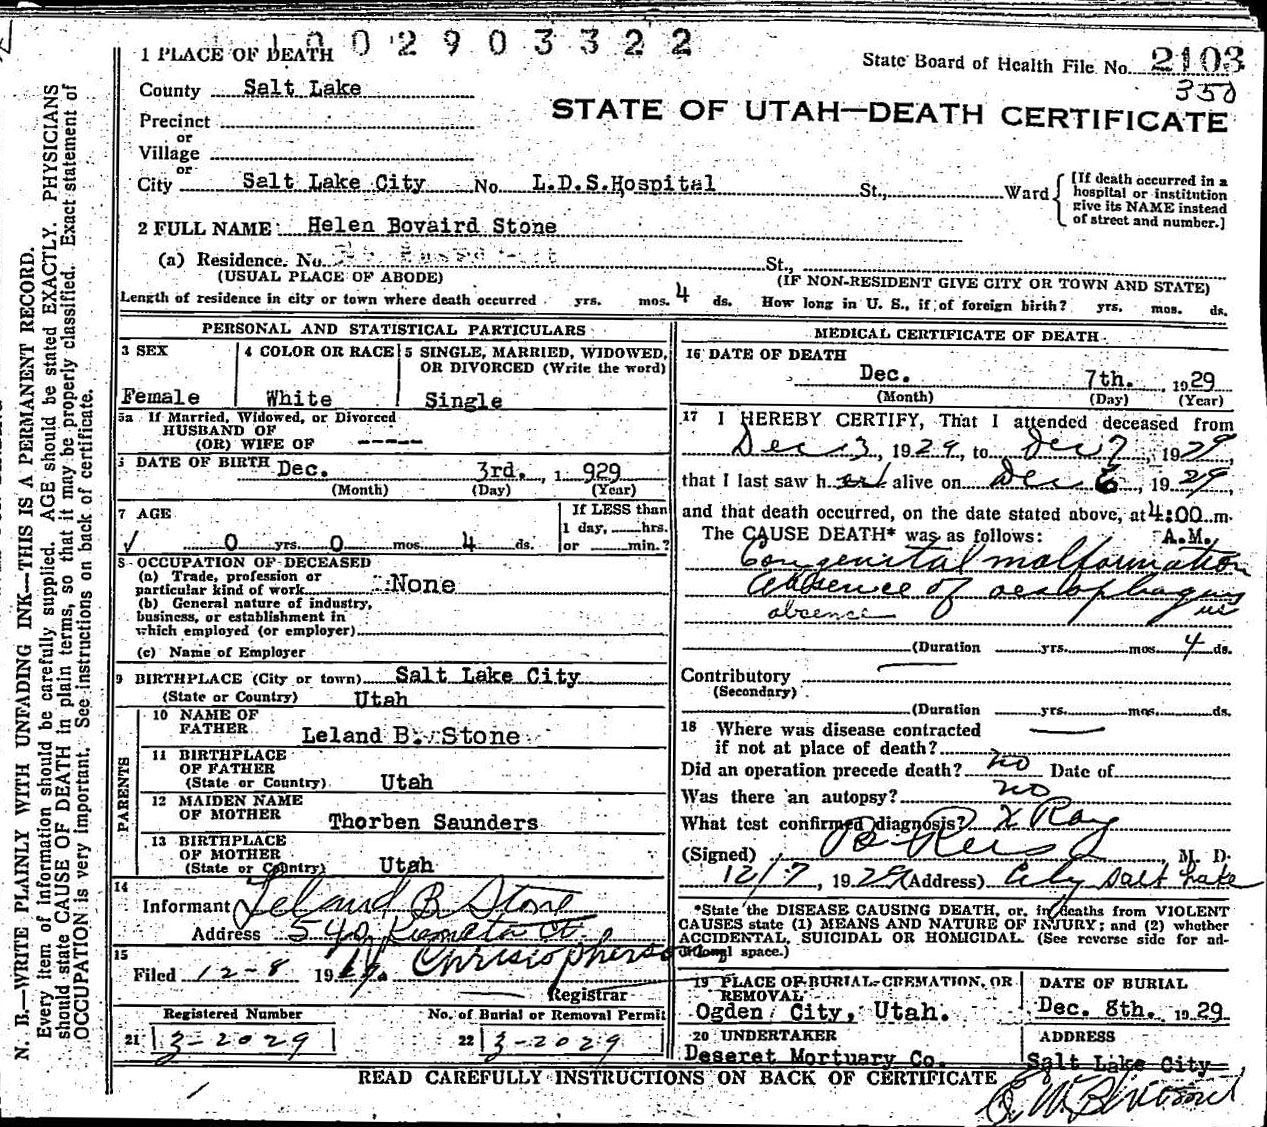 1 0 0 2 9 0 3 3 2 2
1 PLACE OF DEATH
State Board of Health File No. 2103
350
County Salt Lake
STATE OF UTAH—DEATH CERTIFICATE
Precinct
or
Village
or
City Salt Lake City No. L.D.S.Hospital St., Ward
[If death occurred in a
hospital or institution
give its NAME instead
of street and number.]
2 FULL NAME Helen Bovaird Stone
(a) Residence. No. St.,
(USUAL PLACE OF ABODE) (IF NON-RESIDENT GIVE CITY OR TOWN AND STATE)
Length of residence in city or town where death occurred yrs. mos. 4 ds. How long in U. S., if of foreign birth? yrs. mos. ds.
PERSONAL AND STATISTICAL PARTICULARS
3 SEX
Female
4 COLOR OR RACE
White
5 SINGLE, MARRIED, WIDOWED,
OR DIVORCED (Write the word)
Single
5a If Married, Widowed, or Divorced
HUSBAND OF
(OR) WIFE OF -----
DATE OF BIRTH Dec. 3rd., 1 929
(Month) (Day) (Year)
7 AGE
If LESS than
1 day, hrs.
or min.?
✓ 0 yrs. 0 mos. 4 ds.
8 OCCUPATION OF DECEASED
(a) Trade, profession or
particular kind of work None
(b) General nature of industry,
business, or establishment in
which employed (or employer)
(c) Name of Employer
9 BIRTHPLACE (City or town) Salt Lake City
(State or Country) Utah
PARENTS
10 NAME OF
FATHER Leland B. Stone
11 BIRTHPLACE
OF FATHER
(State or Country) Utah
12 MAIDEN NAME
OF MOTHER Thorben Saunders
13 BIRTHPLACE
OF MOTHER
(State or Country) Utah
14
Informant Leland B Stone
Address 540
15
Filed 12-8 19 Christopherson
Registrar
Registered Number No. of Burial or Removal Permit
21 3-2029 22 3-2029
MEDICAL CERTIFICATE OF DEATH
16 DATE OF DEATH
Dec. 7th. , 1929
(Month) (Day) (Year)
17 I HEREBY CERTIFY, That I attended deceased from
Dec 3, 1929, to Dec 7, 1929,
that I last saw her alive on Dec 6, 1929,
and that death occurred, on the date stated above, at 4:00 m.
The CAUSE DEATH* was as follows: A.M.
Congenital malformation
Absence of oesophagus
us
absence
(Duration yrs. mos. 4 ds.
Contributory
(Secondary)
(Duration yrs. mos. ds.
18 Where was disease contracted
if not at place of death?
Did an operation precede death? no Date of
Was there an autopsy? no
What test confirmed diagnosis? X Ray
(Signed) M. D.
12/7, 1929 (Address) City Salt Lake
*State the DISEASE CAUSING DEATH, or, in deaths from VIOLENT
CAUSES state (1) MEANS AND NATURE OF INJURY; and (2) whether
ACCIDENTAL, SUICIDAL OR HOMICIDAL. (See reverse side for ad-
ditional space.)
19 PLACE OF BURIAL-CREMATION, OR
REMOVAL
Ogden City, Utah.
DATE OF BURIAL
Dec. 8th. 1929
20 UNDERTAKER
Deseret Mortuary Co.
ADDRESS
Salt Lake City
READ CAREFULLY INSTRUCTIONS ON BACK OF CERTIFICATE
N. B.—WRITE PLAINLY WITH UNFADING INK—THIS IS A PERMANENT RECORD.
Every item of information should be carefully supplied. AGE should be stated EXACTLY. PHYSICIANS
should state CAUSE OF DEATH in plain terms, so that it may be properly classified. Exact statement of
OCCUPATION is very important. See instructions on back of certificate.